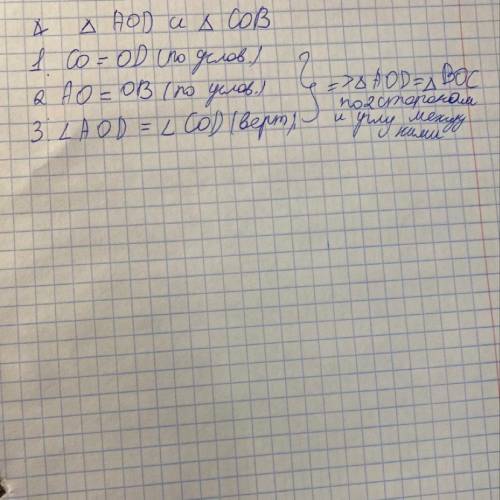 △ AOD и △ COB
1. CO = OD (по услов.)
2 AO = OB (по услов.)
3. ∠AOD = ∠COD (верт)
=> △AOD = △BOC
по 2 сторонам
и углу между
ними